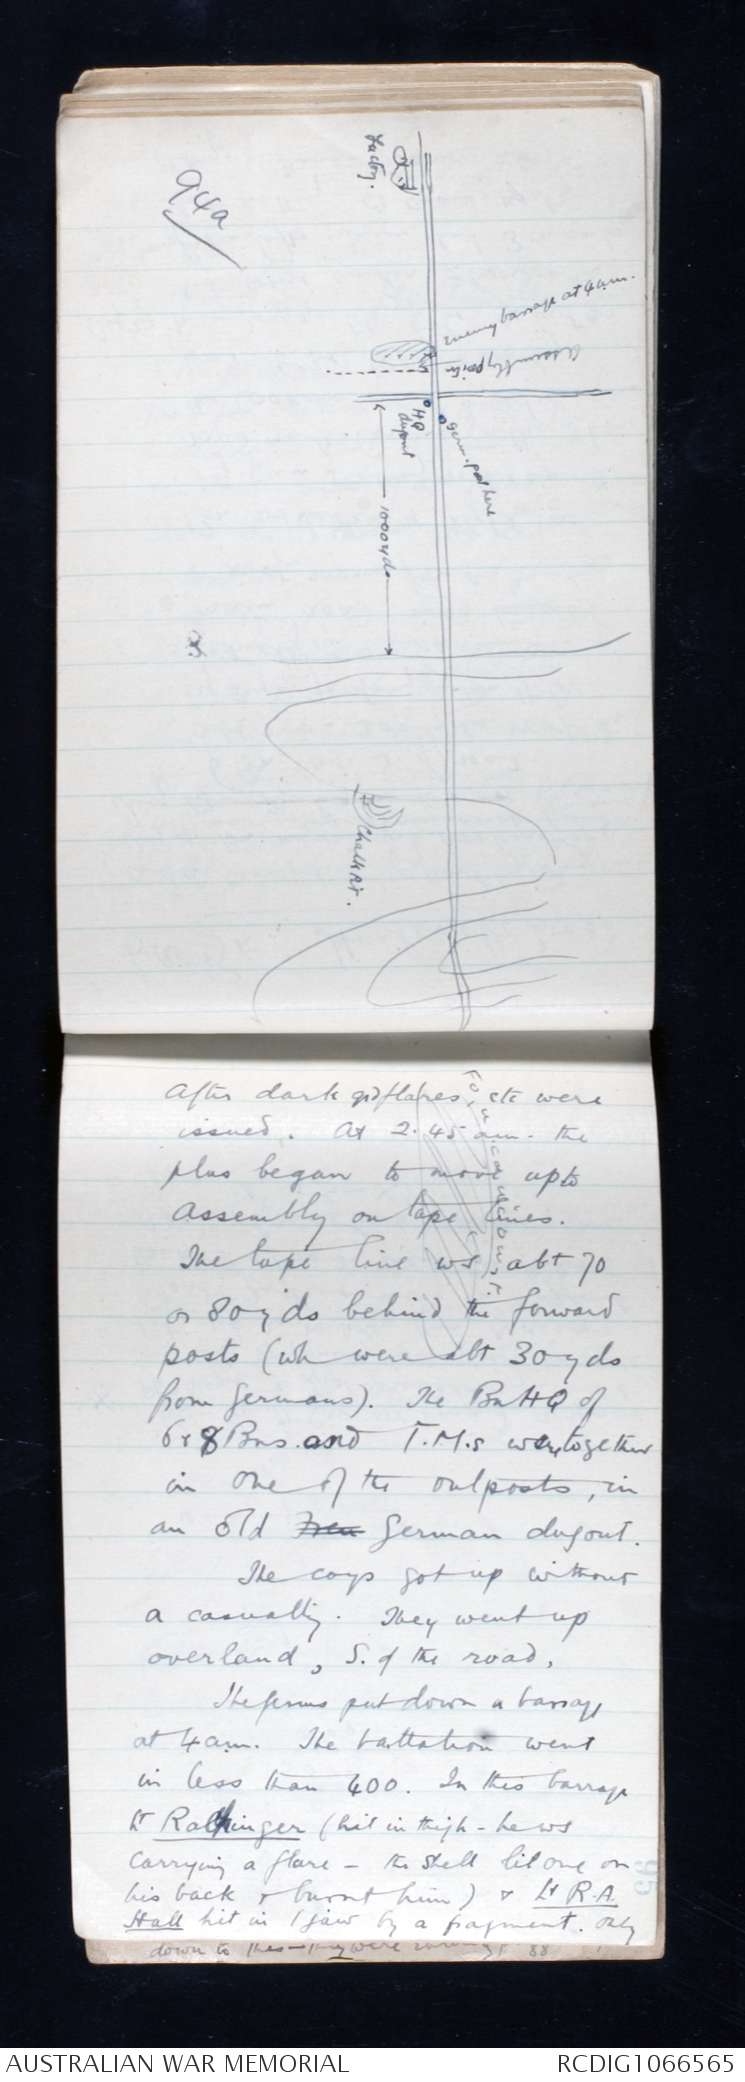 94a
Factory.
enemy barrage at 4 a.m.
Assembly posn
HQ
dugout
Germ. post here
1000 yds
Chalk Pit.
After dark gd flares, etc were
issued. At 2.45 am. the
plns began to move up to
assembly on tape lines.
The tape line ws abt 70
or 80 yds behind the forward
posts (wh were abt 30 yds
from Germans). The Bn HQ of
6 & 8 Bns. and T.M.s were together
in one of the outposts, in
an old Fren German dugout.
The coys got up without
a casualty. They went up
overland, S. of the road,
The Germs put down a barrage
at 4 am. The battalion went
in less than 400. In this barrage
Lt (hit in thigh - he ws
carrying a flare - the shell lit one on
his back & burnt him) & Lt R.A.
Hall hit in jaw by a fragment. Only
down to this - they were 88
AUSTRALIAN WAR MEMORIAL
RCDIG1066565